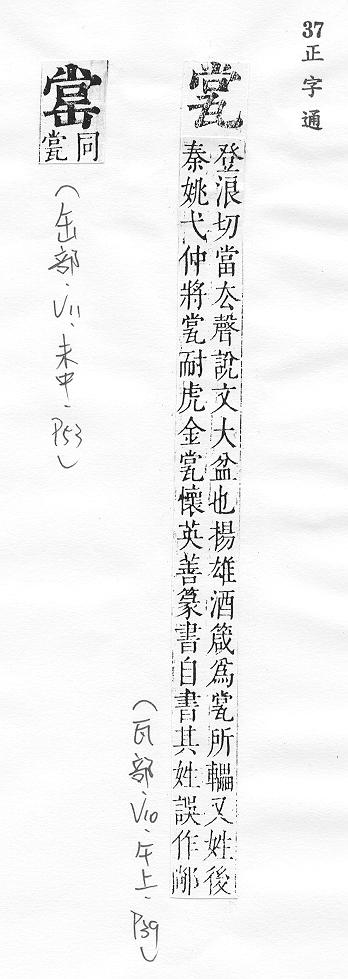 37 正字通
瓽
登浪切當去聲說文大盆也揚雄酒箴為瓽所轠又姓後
秦姚弋仲將瓽耐虎金瓽懷英善篆書自書其姓誤作鄺
(瓦部、V10、午上、P39)
𦉆
同瓽
(缶部、V11、未中、P53)